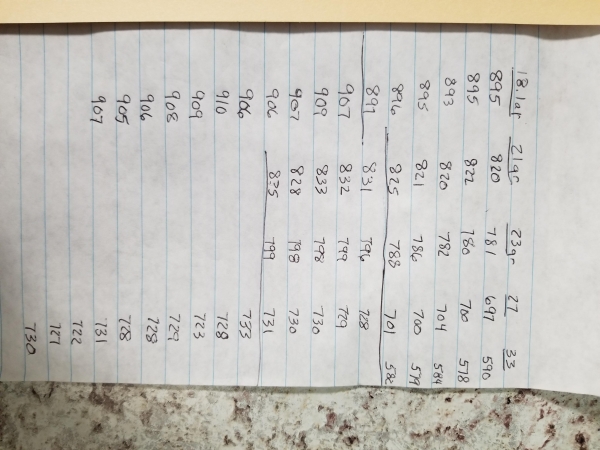 18.1gr 21gr 23gr 27 33
895 820 781 697 590
895 822 780 700 578
893 820 782 704 584
895 821 786 700 579
896 825 788 701 582
831 796 728
907 832 799 729
909 833 798 730
907 828 798 730
906 835 799 731
906 733
910 728
909 723
908 729
906 728
905 728
907 731
722
727
730